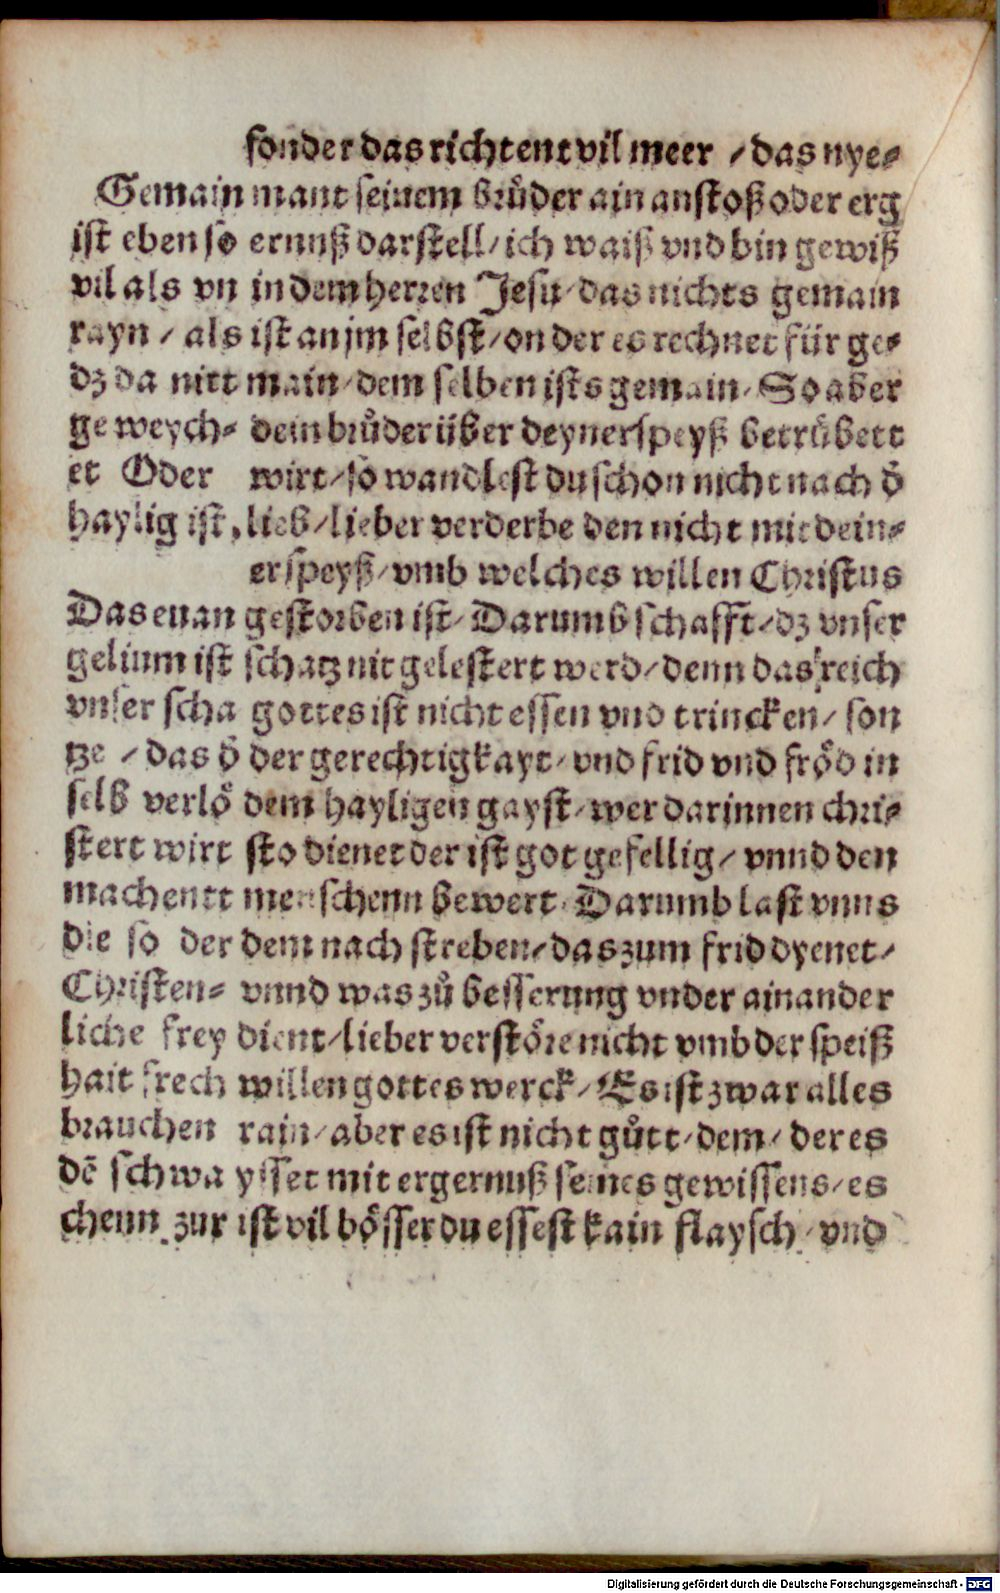 sonder das richtent vil meer / das nye⸗
mant seinem brůder ain anstoß oder erg
ernuß darstell / ich waiß vnd bin gewiß
in dem herren Jesu / das nichts gemain
ist an jm selbst / on der es rechnet für ge⸗
main / dem selben ists gemain / So aber
dein brůder über deyner speyß betrübett
wirt / so wandlest du schon nicht nach d̕
lieb / lieber verderbe den nicht mit dein⸗
er speyß / vmb welches willen Christus
gestorben ist / Darumb schafft / dz vnser
schatz nit gelestert werd / denn das reich
gottes ist nicht essen vnd trincken / son
der gerechtigkayt / vnd frid vnd fröd in
dem hayligen gayst / wer darinnen chri⸗
sto dienet der ist got gefellig / vnnd den
menschenn bewert / Darumb last vnns
dem nach streben / das zum frid dyenet /
vnnd was zů besserung vnder ainander
dient / lieber verstöre nicht vmb der speiß
willen gottes werck / Es ist zwar alles
rain / aber es ist nicht gůtt / dem / der es
ysset mit ergernuß seines gewissens / es
ist vil bösser du essest kain flaysch / vnd
Gemain
ist eben so
vil als vn
rayn / als
dz da nitt
geweych⸗
et Oder
haylig ist,
Das euan
gelium ist
vnser scha
tze / das d̕
selb verlö
stert wirt
machentt
die so der
Christen⸗
liche frey
hait frech
brauchen
dē schwa
chenn zur
Digitalisierung gefördert durch die Deutsche Forschungsgemeinschaft - DFG